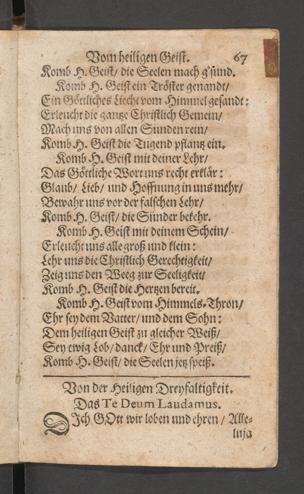 Vom heiligen Geist. 67
Komb H. Geist/ die Seelen mach g'sund.
Komb H. Geist ein Tröster genandt/
Ein Göttliches Liecht vom Himmel gesandt:
Erleucht die gantze Christlich Gemein/
Mach uns von allen Sünden rein/
Komb H. Geist die Tugend pflantz ein.
Komb H. Geist mit deiner Lehr/
Das Göttliche Wort uns recht erklär:
Glaub/ Lieb/ und Hoffnung in uns mehr/
Bewahr uns vor der falschen Lehr/
Komb H. Geist/ die Sünder bekehr.
Komb H. Geist mit deinem Schein/
Erleucht uns alle groß und klein:
Lehr uns die Christlich Gerechtigkeit/
Zeig uns den Weeg zur Seeligkeit/
Komb H. Geist die Hertzen bereit.
Komb H. Geist vom Himmels-Thron/
Ehr sey dem Vatter/ und dem Sohn:
Dem heiligen Geist zu gleicher Weiß/
Sey ewig Lob/ danck/ Ehr und Preiß/
Komb H. Geist/ die Seelen jetz speiß.
Von der Heiligen Dreyfaltigkeit.
Das Te Deum Laudamus.
DIch GOtt wir loben und ehren/ Alle-
luja